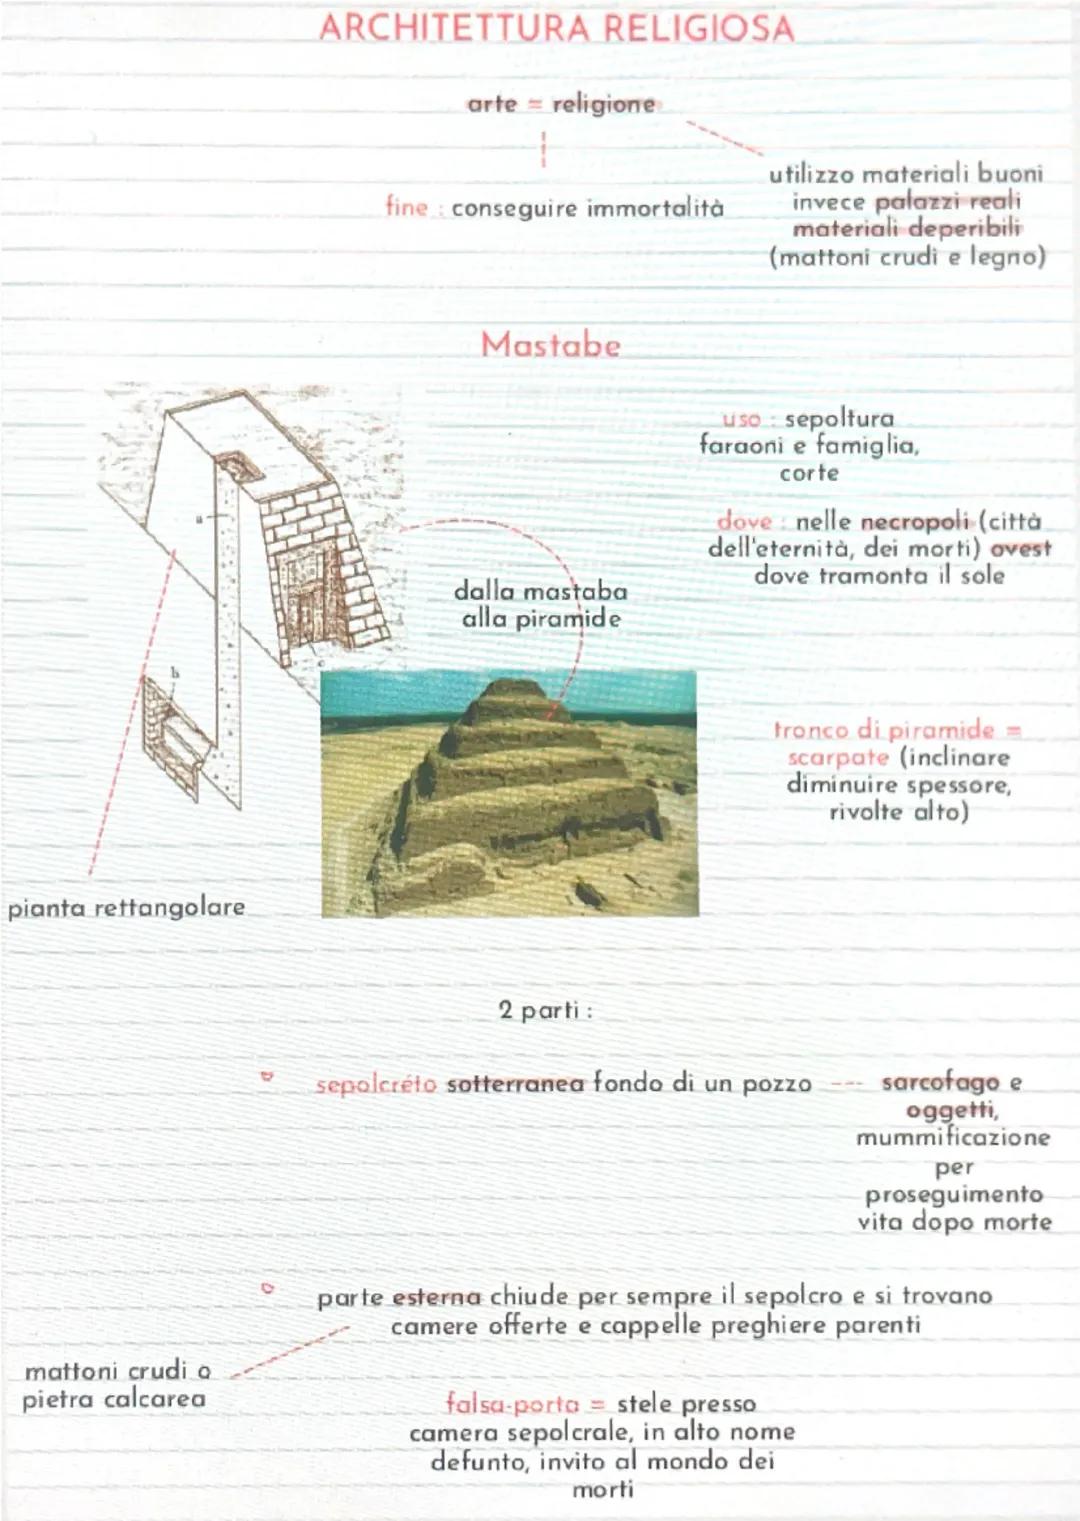 ARCHITETTURA RELIGIOSA
arte = religione
fine : conseguire immortalità
utilizzo materiali buoni
invece palazzi reali
materiali deperibili
(mattoni crudi e legno)
Mastabe
uso : sepoltura
faraoni e famiglia,
corte
dove : nelle necropoli (città
dell'eternità, dei morti) ovest
dove tramonta il sole
a
b
c
dalla mastaba
alla piramide
tronco di piramide =
scarpate (inclinare
diminuire spessore,
rivolte alto)
pianta rettangolare
2 parti :
sepolcréto sotterranea fondo di un pozzo --- sarcofago e
oggetti,
mummificazione
per
proseguimento
vita dopo morte
parte esterna chiude per sempre il sepolcro e si trovano
camere offerte e cappelle preghiere parenti
mattoni crudi o
pietra calcarea
falsa-porta = stele presso
camera sepolcrale, in alto nome
defunto, invito al mondo dei
morti